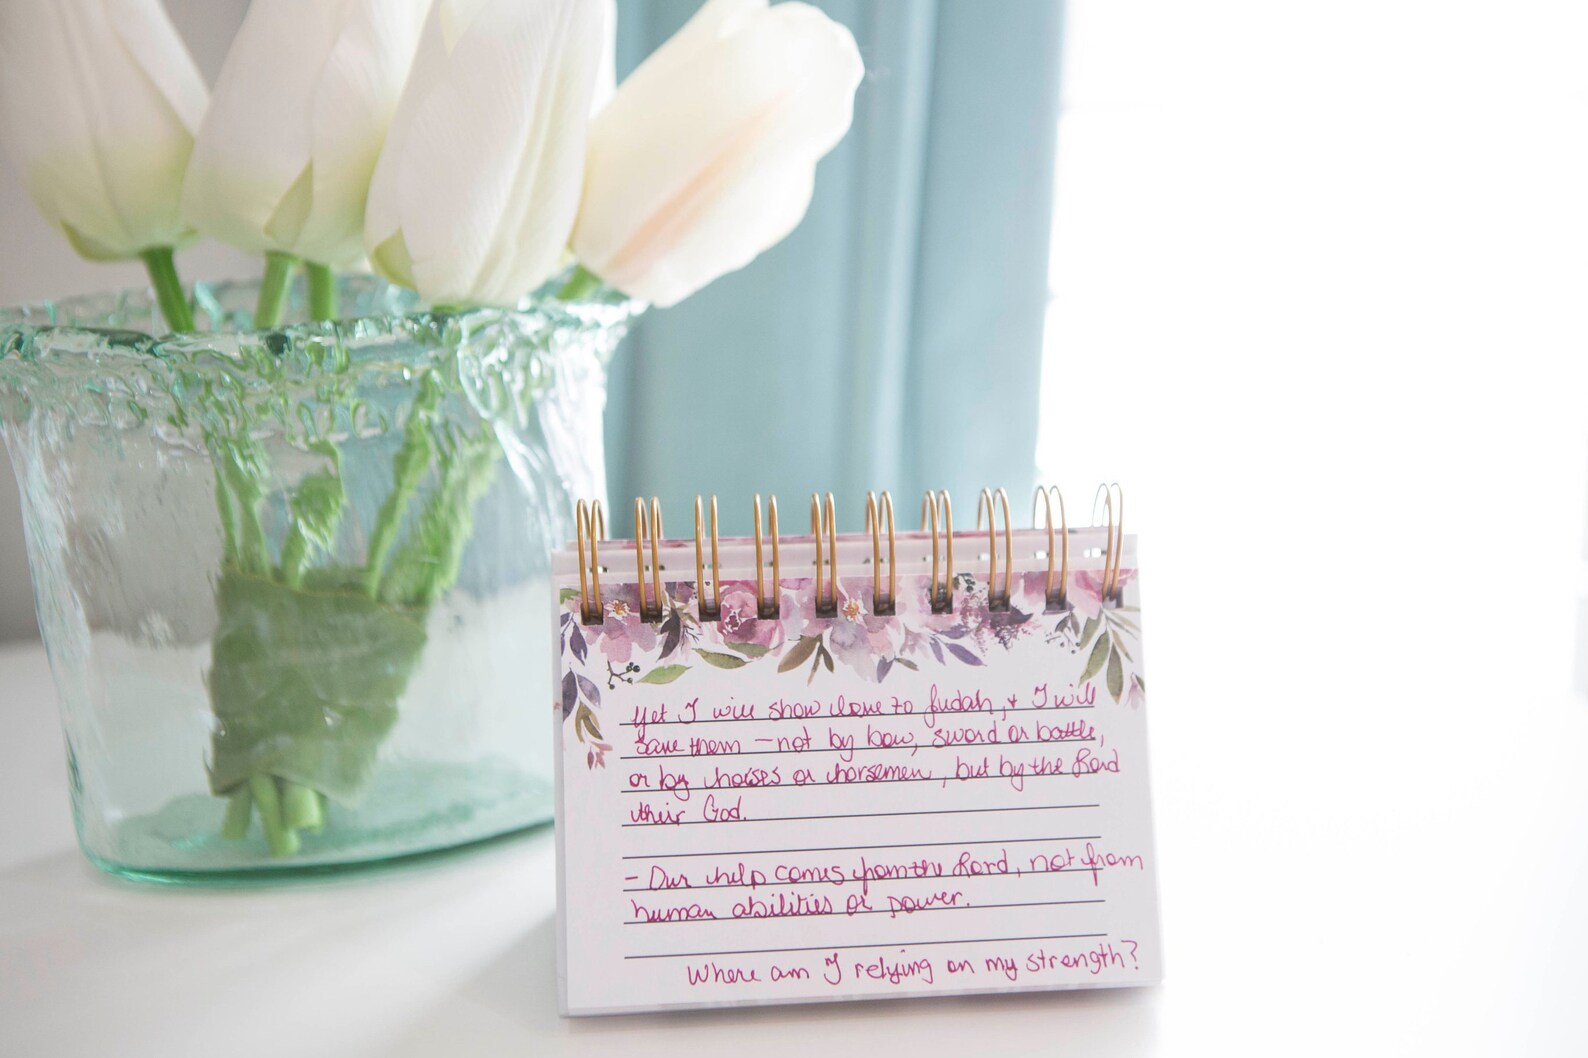 Yet I will show love to Judah, + I will
save them - not by bow, sword or battle,
or by horses or horsemen, but by the Lord
their God.
- Our help comes from the Lord, not from
human abilities or power.
Where am I relying on my strength?